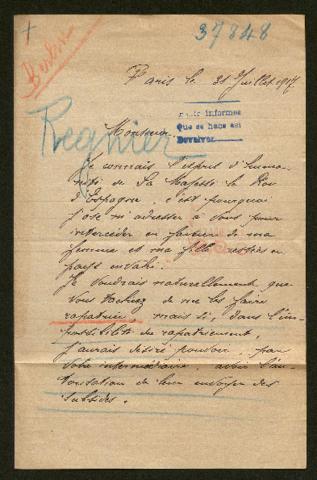 37848
Berlin
Paris le 21 Juillet 1917
informes
Que se hace así
Devolver
Regnier
Monsieur
Je connais l'esprit d'huma-
nité de Sa Majesté le Roi
d'Espagne, c'est pourquoi
j'ose m'adresser à vous pour
intercéder en faveur de ma
femme et ma fille restées en
pays envahi.
Je voudrais naturellement que
vous tachiez de me les faire
rapatrier mais si, dans l'im-
possibilité du rapatriement,
j'aurais désiré pouvoir, par
votre intermédiaire avoir l'au-
torisation de leur envoyer des
subsides.